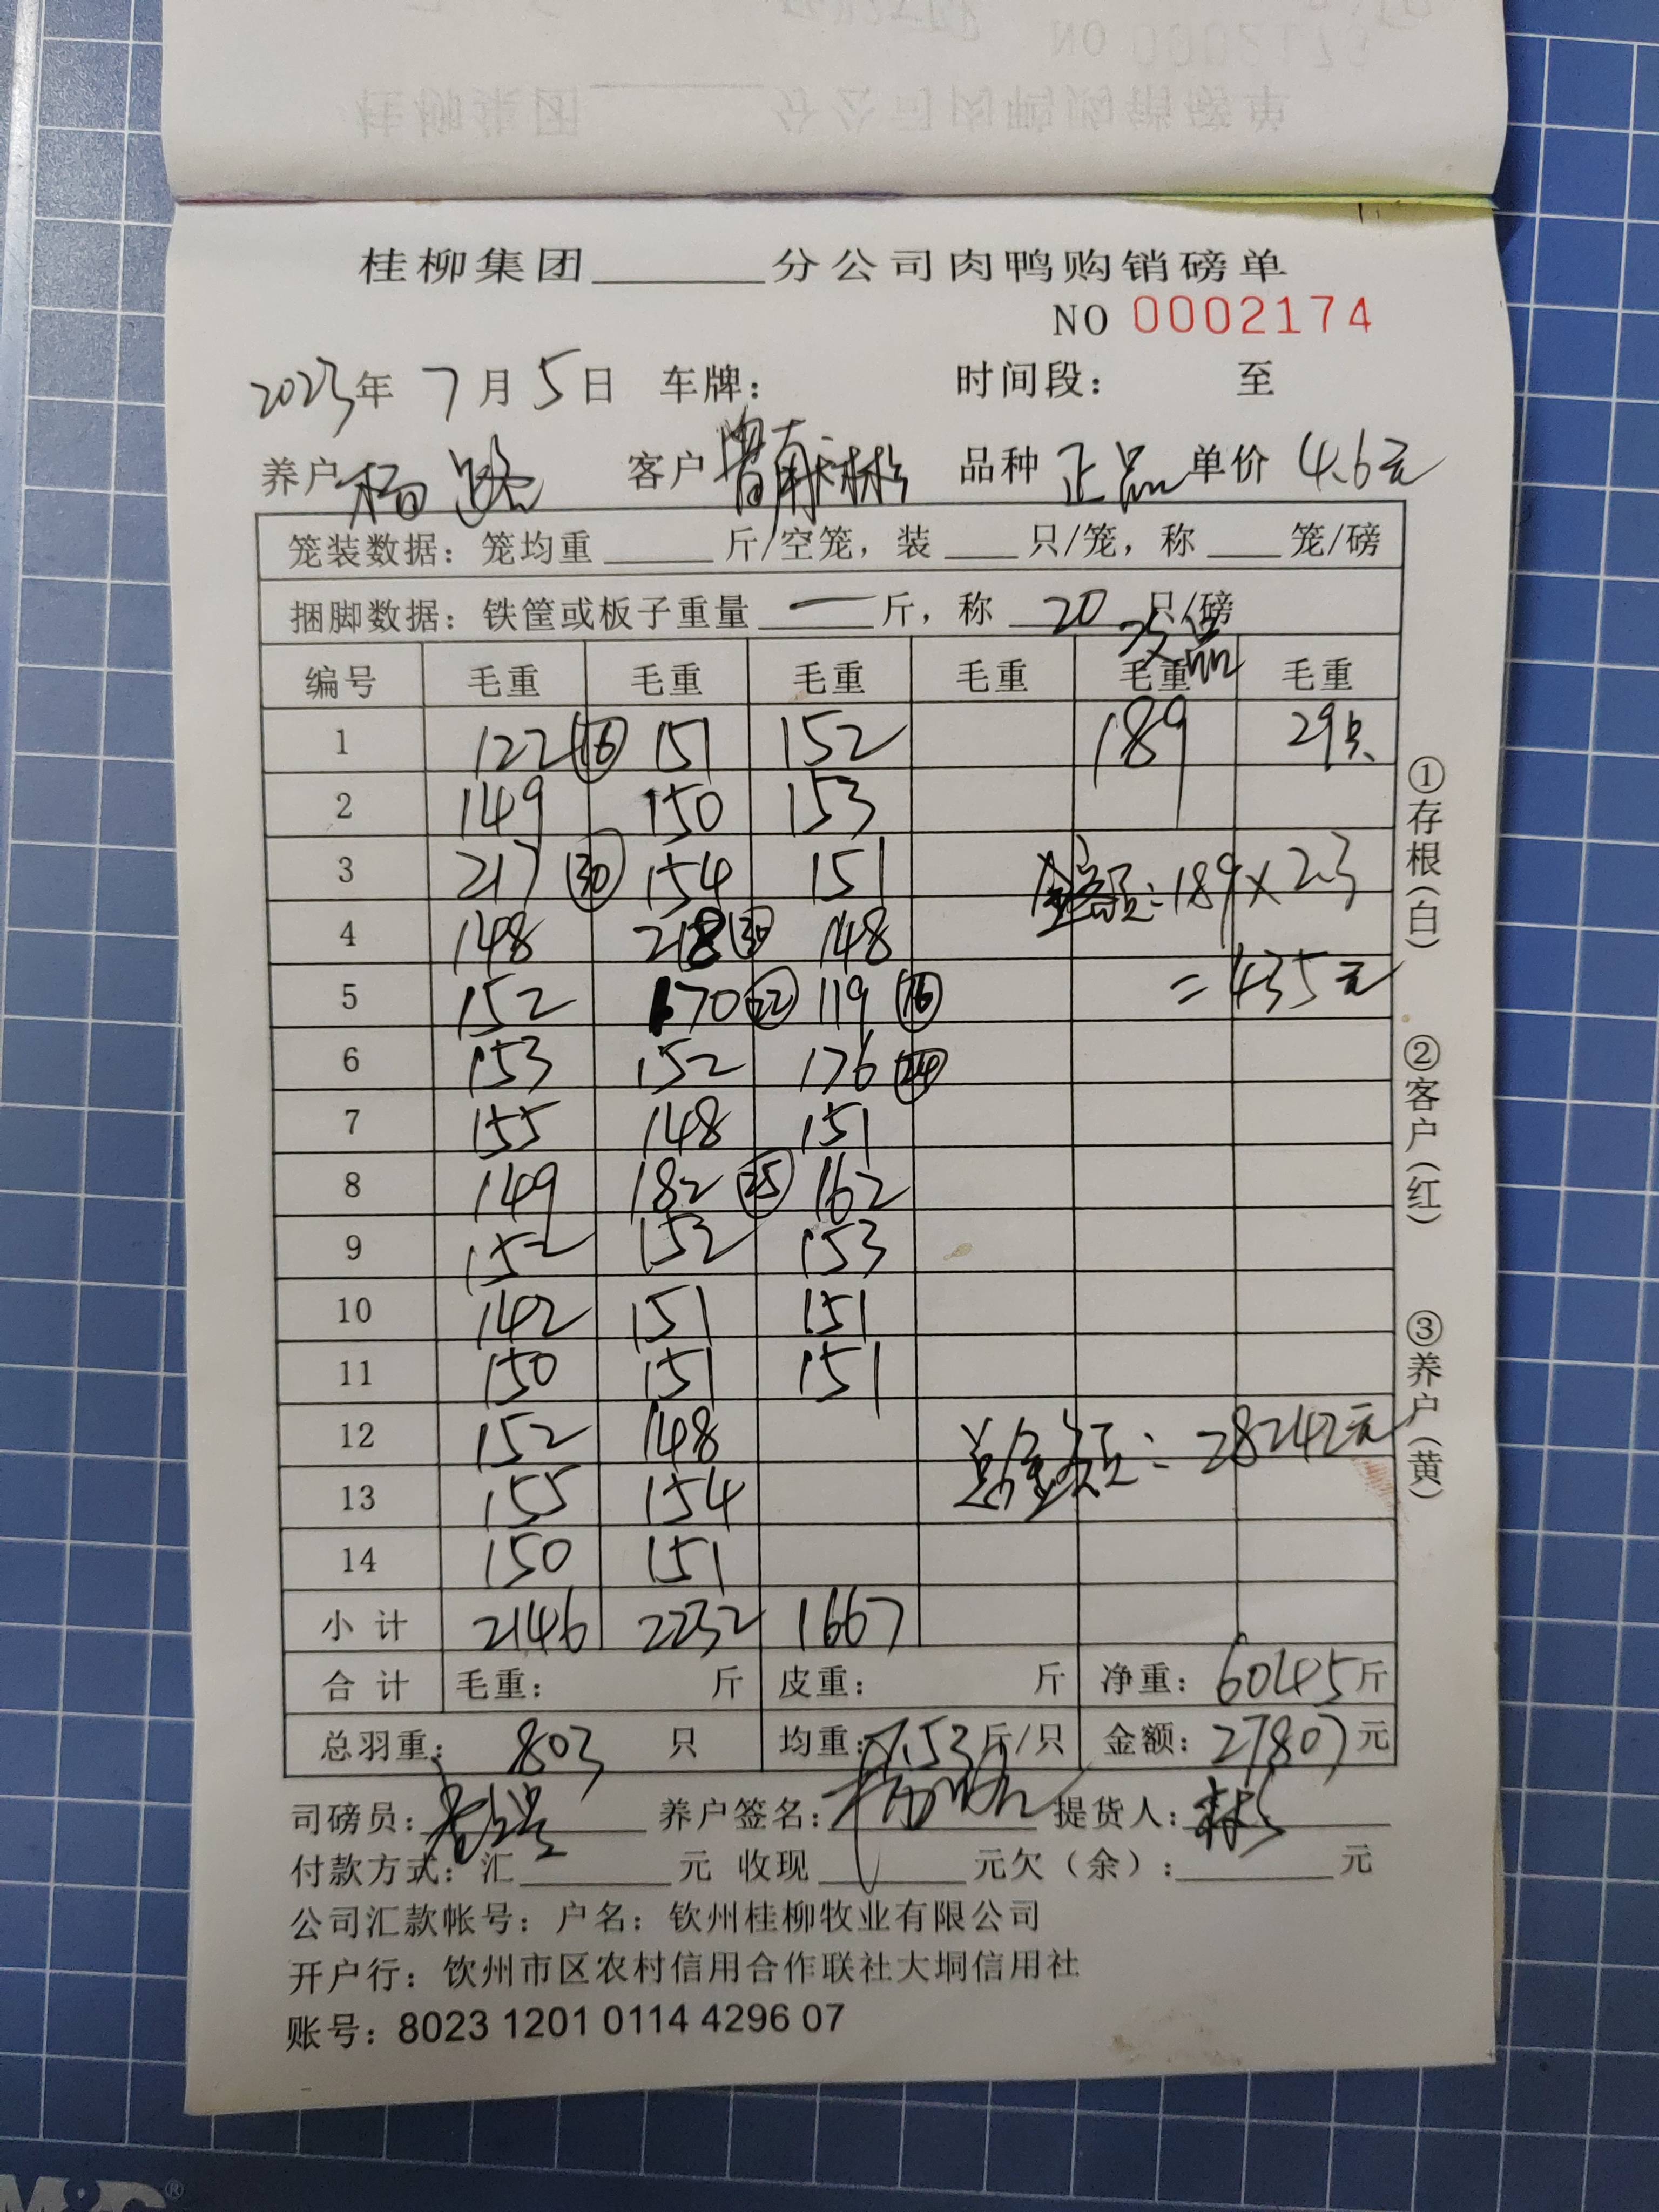 桂柳集团______分公司肉鸭购销磅单
NO 0002174
2023年 7月5日 车牌： 时间段： 至
养户 杨 客户 曾献彬 品种 正品 单价 4.6元
笼装数据：笼均重______斤/空笼，装____只/笼，称____笼/磅
捆脚数据：铁筐或板子重量 — 斤，称 20 只/磅
次品
编号 毛重 毛重 毛重 毛重 毛重 毛重
1 122 (16) 151 152 189 29只
2 149 150 153
3 217 (30) 154 151 金额：189×2.3
4 148 218 (30) 148
5 152 170 (22) 119 (16) =435元
6 153 152 176 (24)
7 155 148 151
8 149 182 (25) 162
9 152 152 153
10 142 151 151
11 150 151 151
12 152 148 总金额：28242元
13 155 154
14 150 151
小计 2146 2232 1667
合计 毛重： 斤 皮重： 斤 净重：6045斤
总羽重：803 只 均重：7.53斤/只 金额：27807元
司磅员： 养户签名： 提货人：
付款方式：汇______元 收现______元欠（余）：______元
公司汇款帐号：户名：钦州桂柳牧业有限公司
开户行：饮州市区农村信用合作联社大垌信用社
账号：8023 1201 0114 4296 07
①存根（白） ②客户（红） ③养户（黄）
M&G®